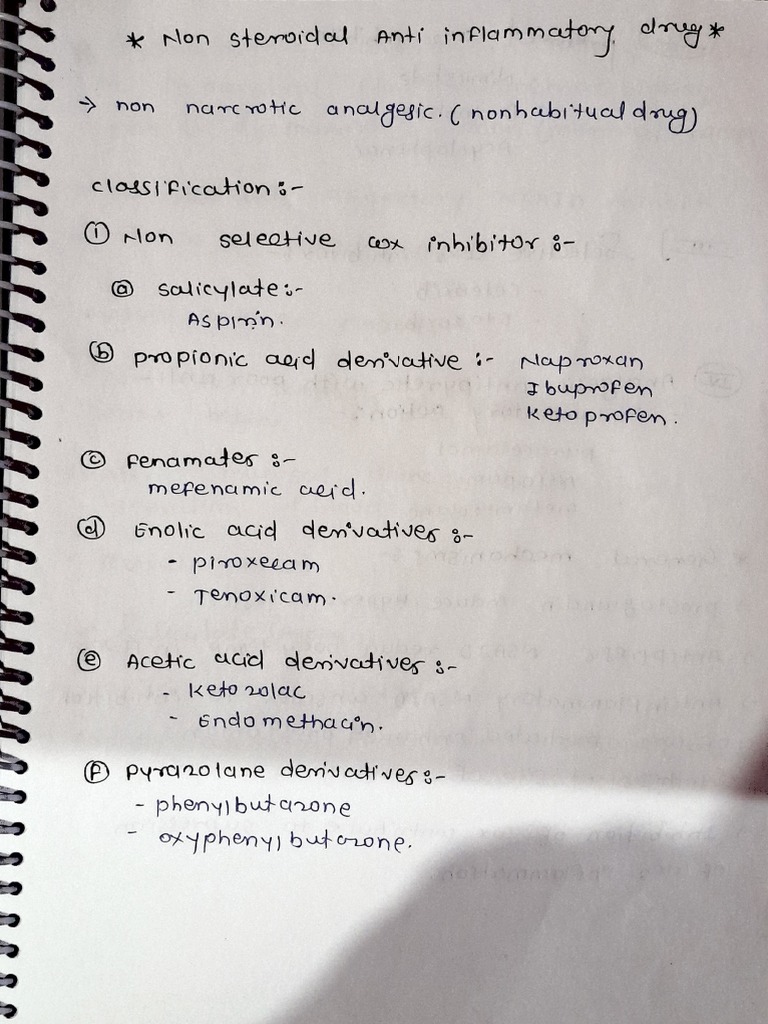 * Non steroidal Anti inflammatory drug *
→ non narcrotic analgesic. (nonhabitual drug)
classification :-
① Non selective cox inhibitor :-
ⓐ salicylate :-
Aspirin.
ⓑ propionic acid derivative :- Naproxan
Ibuprofen
Ketoprofen.
ⓒ Fenamates :-
mefenamic acid.
ⓓ Enolic acid derivatives :-
- piroxecam
- Tenoxicam.
ⓔ Acetic acid derivatives :-
- Ketozolac
- Endomethacin.
ⓕ pyrazolane derivatives :-
- phenylbutazone
- oxyphenylbutazone.